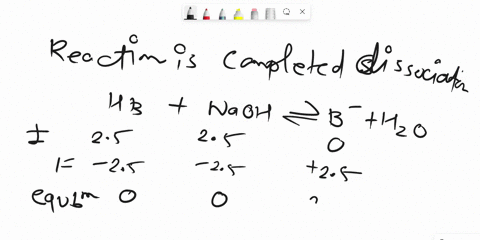 Reaction is Completed dissociation
HB + NaOH ⇌ B⁻ + H₂O
I 2.5 2.5 0
-2.5 -2.5 +2.5
equbᵐ 0 0 2